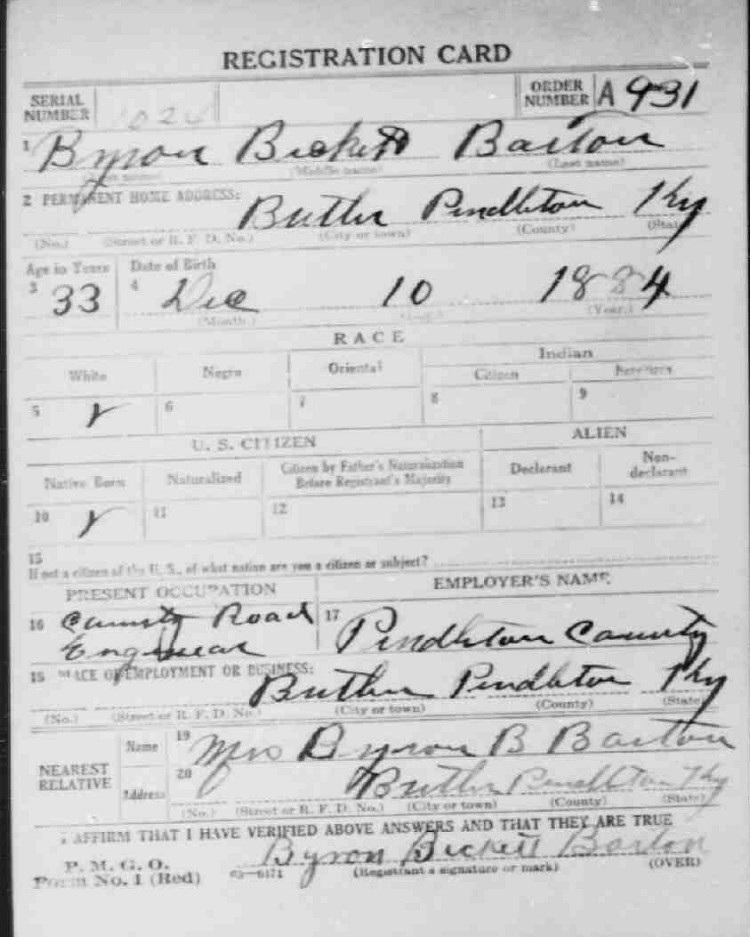 REGISTRATION CARD
SERIAL NUMBER 1024 ORDER NUMBER A 931
1 Byron Bickett Barton
(First name) (Middle name) (Last name)
2 PERMANENT HOME ADDRESS:
Butler Pendleton Ky
(No.) (Street or R. F. D. No.) (City or town) (County) (State)
Age in Years Date of Birth
3 33 4 Dec 10 1884
(Month.) (Day.) (Year.)
RACE
White Negro Oriental Indian
Citizen Noncitizen
5 6 7 8 9
U. S. CITIZEN ALIEN
Native Born Naturalized Citizen by Father's Naturalization Before Registrant's Majority Declarant Non-declarant
10 11 12 13 14
15
If not a citizen of the U. S., of what nation are you a citizen or subject?
PRESENT OCCUPATION EMPLOYER'S NAME
16 County Road 17 Pendleton County
Engineer
18 PLACE OF EMPLOYMENT OR BUSINESS:
Butler Pendleton Ky
(No.) (Street or R. F. D. No.) (City or town) (County) (State)
NEAREST RELATIVE
Name 19 Mrs Byron B Barton
Address 20 Butler Pendleton Ky
(No.) (Street or R. F. D. No.) (City or town) (County) (State)
I AFFIRM THAT I HAVE VERIFIED ABOVE ANSWERS AND THAT THEY ARE TRUE
Byron Bickett Barton
P. M. G. O.
Form No. 1 (Red) 03—6171 (Registrant's signature or mark) (OVER)